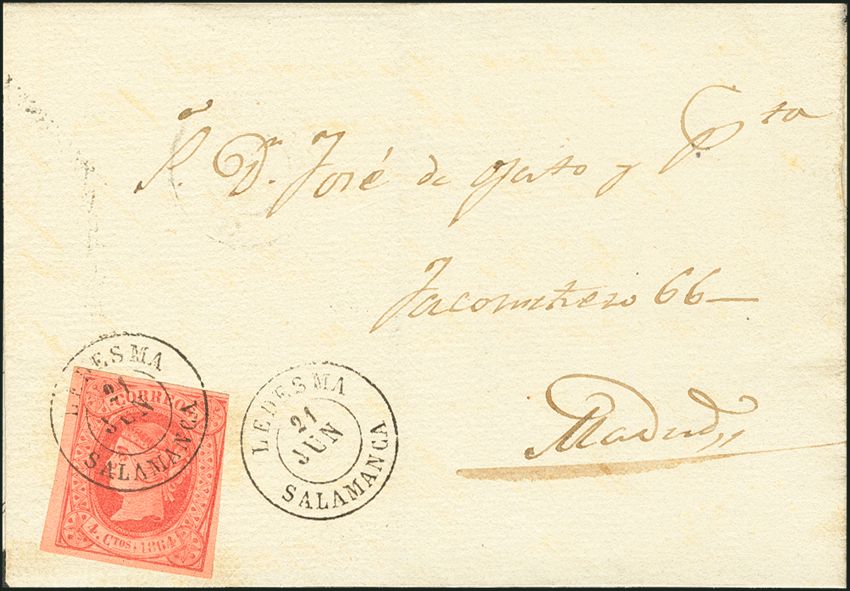 S. Dn. José de y Pta
Jacometrezo 66—
Madrid
LEDESMA
21
JUN
SALAMANCA
LEDESMA
21
JUN
SALAMANCA
CORREOS
4. CTOS. 1864